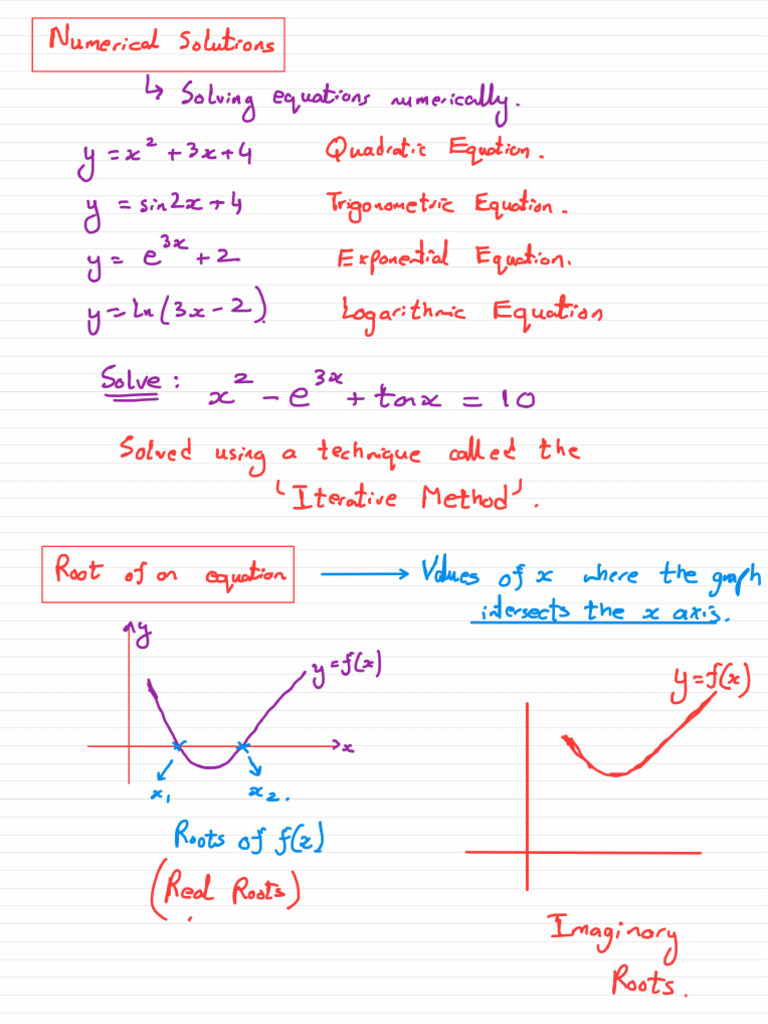 Numerical Solutions
↳ Solving equations numerically.
y = x² + 3x + 4 Quadratic Equation.
y = sin2x + 4 Trigonometric Equation.
y = e³ˣ + 2 Exponential Equation.
y = ln(3x - 2). Logarithmic Equation
Solve: x² - e³ˣ + tanx = 10
Solved using a technique called the
'Iterative Method'.
Root of an equation → Values of x where the graph
intersects the x axis.
y
y = f(x)
x
x₁ x₂.
Roots of f(x)
(Real Roots)
y = f(x)
Imaginary
Roots.